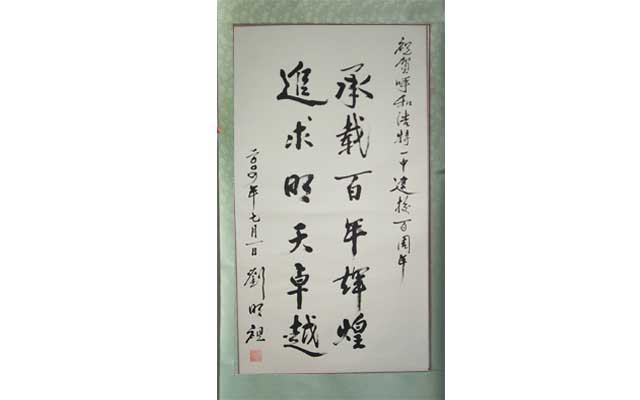 祝贺呼和浩特一中建校百周年
承载百年辉煌
追求明天卓越
二〇〇四年七月一日 劉明祖